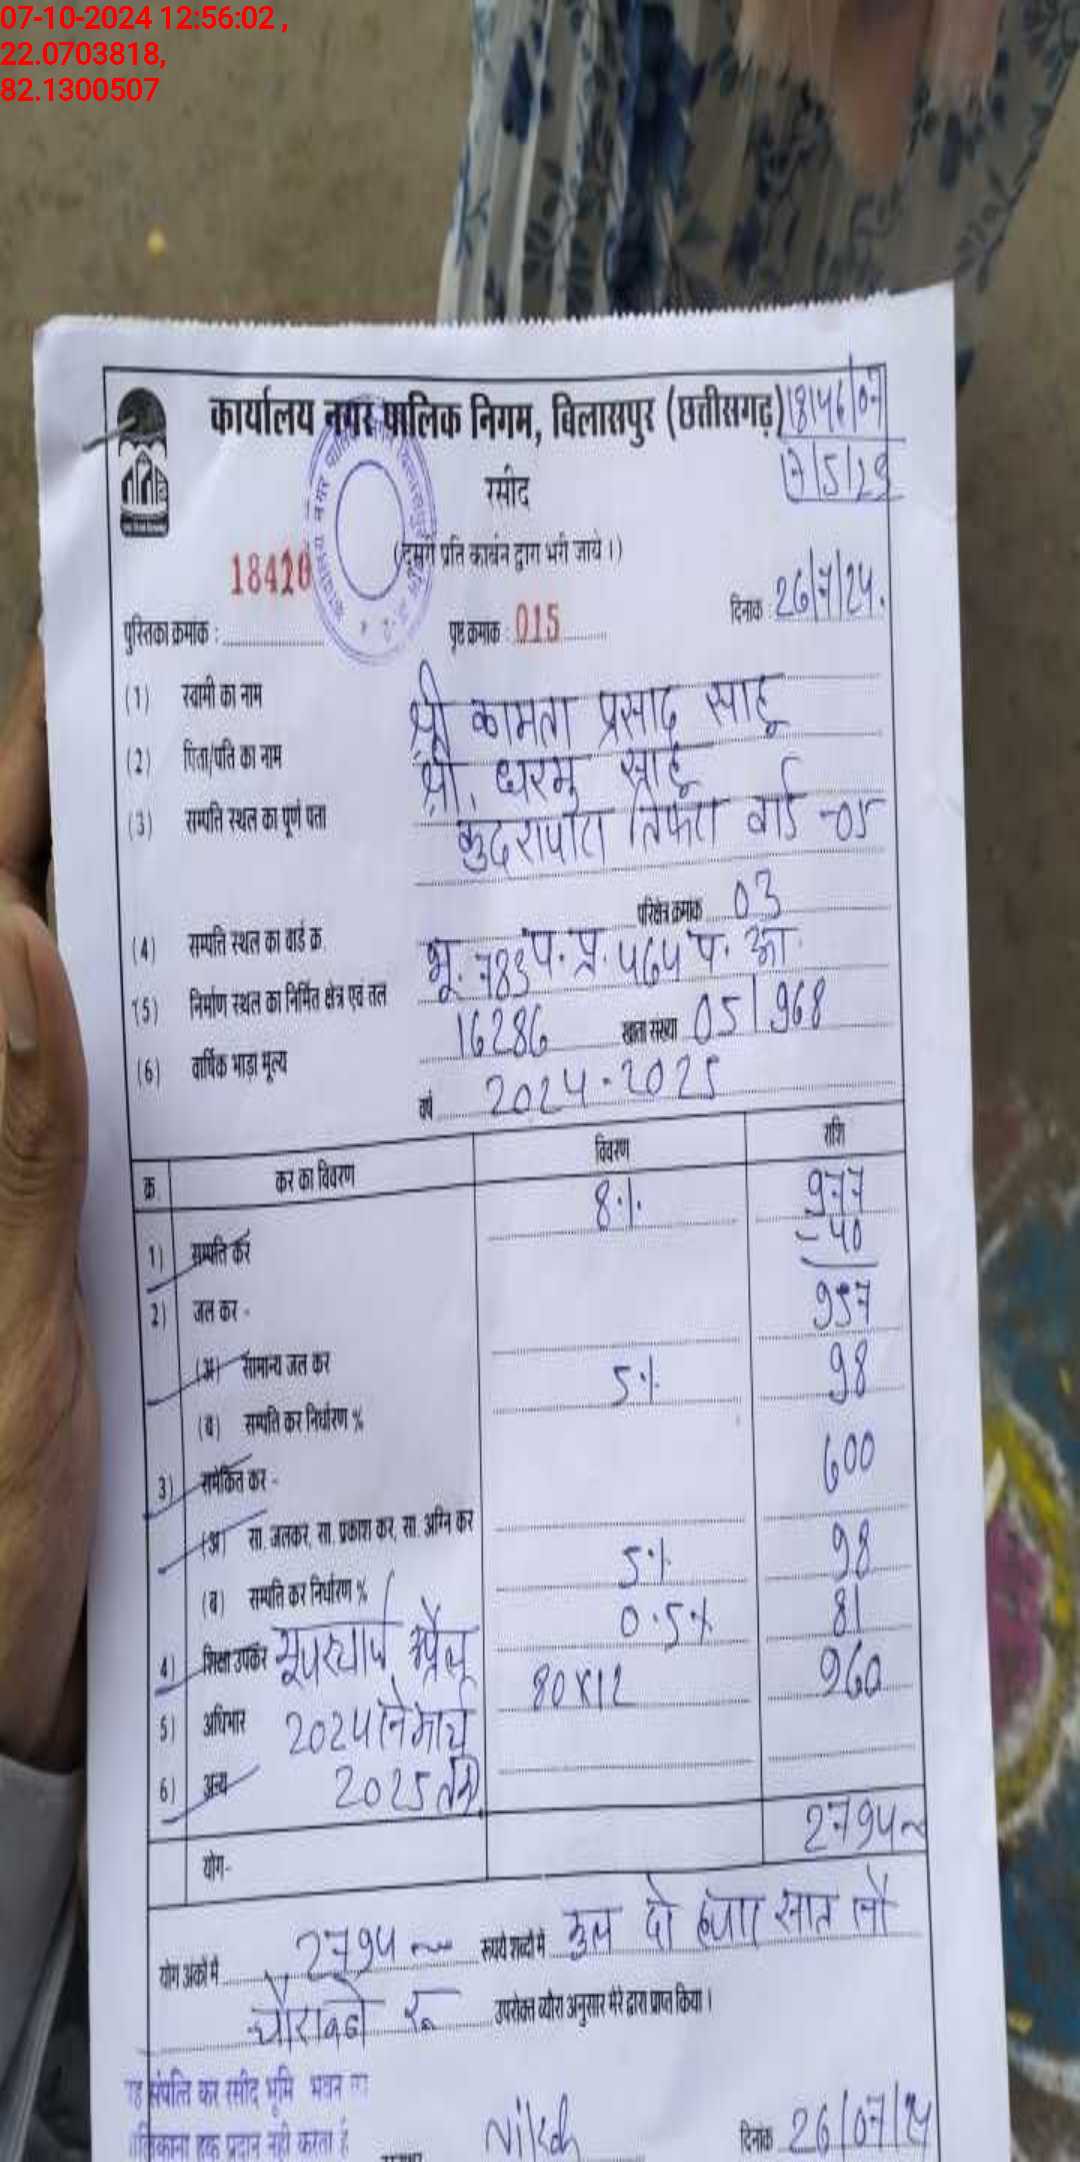 07-10-2024 12:56:02 ,
22.0703818,
82.1300507
कार्यालय नगर पालिक निगम, बिलासपुर (छत्तीसगढ़)
रसीद
(दूसरी प्रति कार्बन द्वारा भरी जाये।)
18420
पुस्तिका क्रमांक :
पृष्ठ क्रमांक : 015
दिनांक : 26/7/24.
(1) स्वामी का नाम श्री कामता प्रसाद साहू
(2) पिता/पति का नाम श्री. धरमु साहू
(3) सम्पति स्थल का पूर्ण पता कुदरापारा तिफरा वार्ड -05
(4) सम्पति स्थल का वार्ड क्र. परिक्षेत्र क्रमांक 03
(5) निर्माण स्थल का निर्मित क्षेत्र एवं तल भू. 783 प. प्र. 464 प. आ.
(6) वार्षिक भाड़ा मूल्य 16286 खाता संख्या 05/968
वर्ष 2024-2025
क्र. कर का विवरण विवरण राशि
1) सम्पति कर 8% 977
-40
937
2) जल कर -
(अ) सामान्य जल कर
(ब) सम्पति कर निर्धारण % 5% 98
3) समेकित कर - 600
(अ) सा. जलकर, सा. प्रकाश कर, सा. अग्नि कर
(ब) सम्पति कर निर्धारण % 5% 98
4) शिक्षा उपकर 0.5% 81
5) अधिभार 2024 से मार्च 80X12 960
6) अन्य 2025 तक.
योग- 2794
योग अंकों में 2794 रूपये शब्दों में कुल दो हजार सात सौ
चौरानबे रू उपरोक्त ब्यौरा अनुसार मेरे द्वारा प्राप्त किया।
संपत्ति कर रसीद भूमि भवन का
हक प्रदान नही करता है
दिनांक 26/07/24